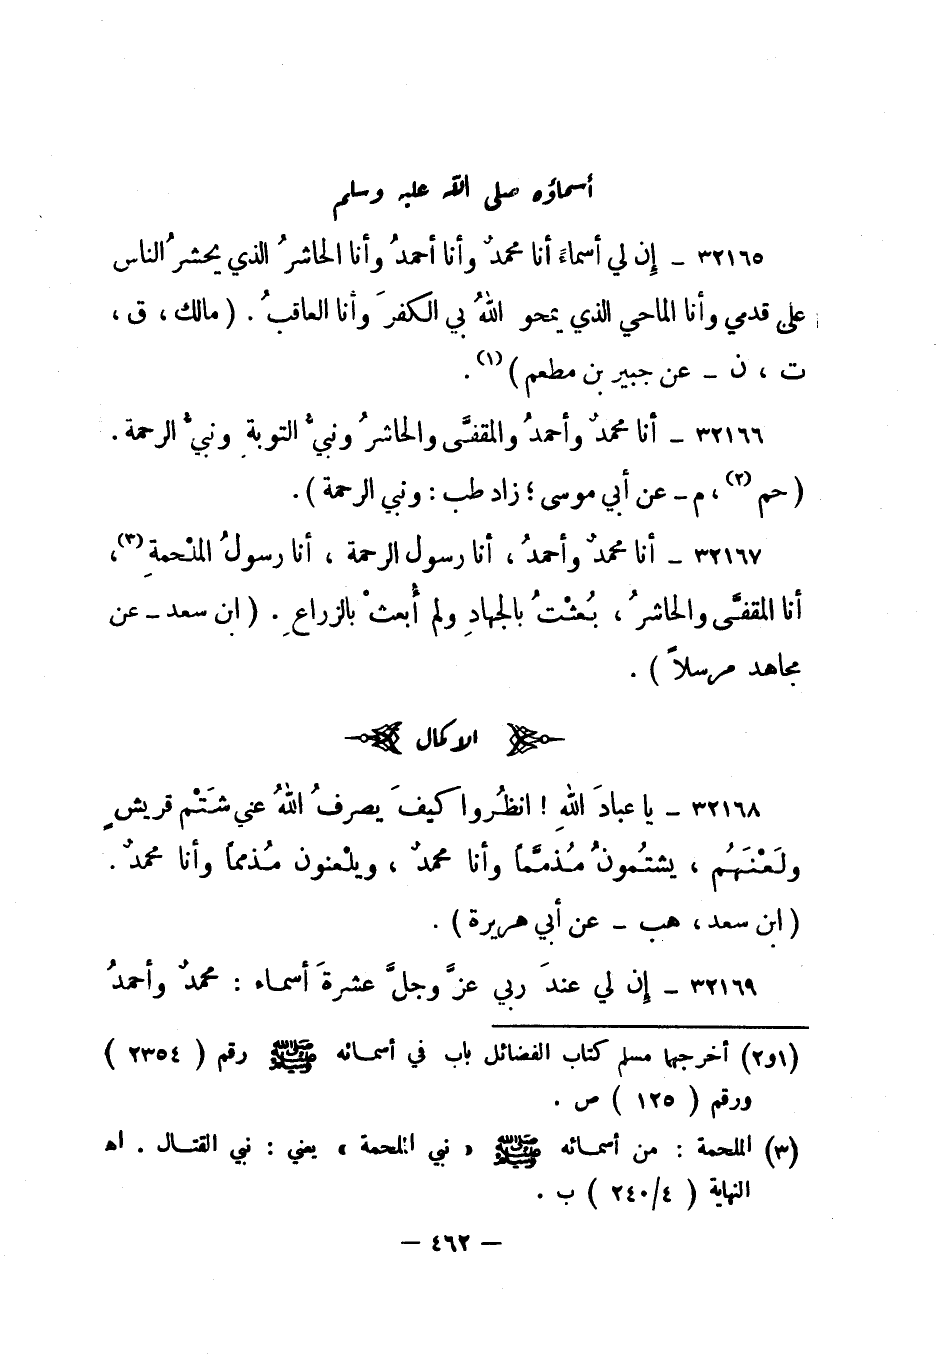 أسماؤه صلى الله عليه وسلم
٣٢١٦٥ ـ إن لي أسماءَ أنا محمدٌ وأنا أحمدُ وأنا الحاشرُ الذي يحشرُ الناس
على قدمي وأنا الماحي الذي يمحو اللهُ بي الكفرَ وأنا العاقبُ . ( مالك ، ق ،
ت ، ن ـ عن جبير بن مطعم )(١) .
٣٢١٦٦ ـ أنا محمدٌ وأحمدُ والمقفَّى والحاشرُ ونبيُّ التوبةِ ونبيُّ الرحمة .
( حم(٢) ، م ـ عن أبي موسى ؛ زاد طب : ونبي الرحمة ) .
٣٢١٦٧ ـ أنا محمدٌ وأحمدُ ، أنا رسول الرحمة ، أنا رسولُ الملْحمةِ(٣) ،
أنا المقفَّى والحاشرُ ، بُعثْتُ بالجهادِ ولم أُبعثْ بالزراعِ . ( ابن سعد ـ عن
مجاهد مرسلاً ) .
الاكمال
٣٢١٦٨ ـ يا عبادَ اللهِ ! انظُروا كيفَ يصرفُ اللهُ عني شتْم قريشٍ
ولَعْنَهُم ، يشتُمونُ مُذمَّماً وأنا محمدٌ ، ويلْعنون مُذمماً وأنا محمدٌ .
( ابن سعد ، هب ـ عن أبي هريرة ) .
٣٢١٦٩ ـ إن لي عندَ ربي عزَّ وجلَّ عشرةَ أسماء : محمدٌ وأحمدُ
(١و٢) أخرجها مسلم كتاب الفضائل باب في أسمائه ﷺ رقم ( ٢٣٥٤ )
ورقم ( ١٢٥ ) ص .
(٣) الملحمة : من أسمائه ﷺ « نبي الملحمة » يعني : نبي القتال . اه
النهاية ( ٢٤٠/٤ ) ب .
— ٤٦٢ —